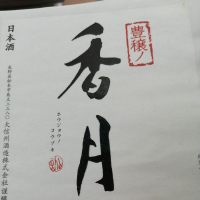 豊穣ノ
香月
ホウジョウノ
コウヅキ
日本酒
大信州酒造株式会社謹醸